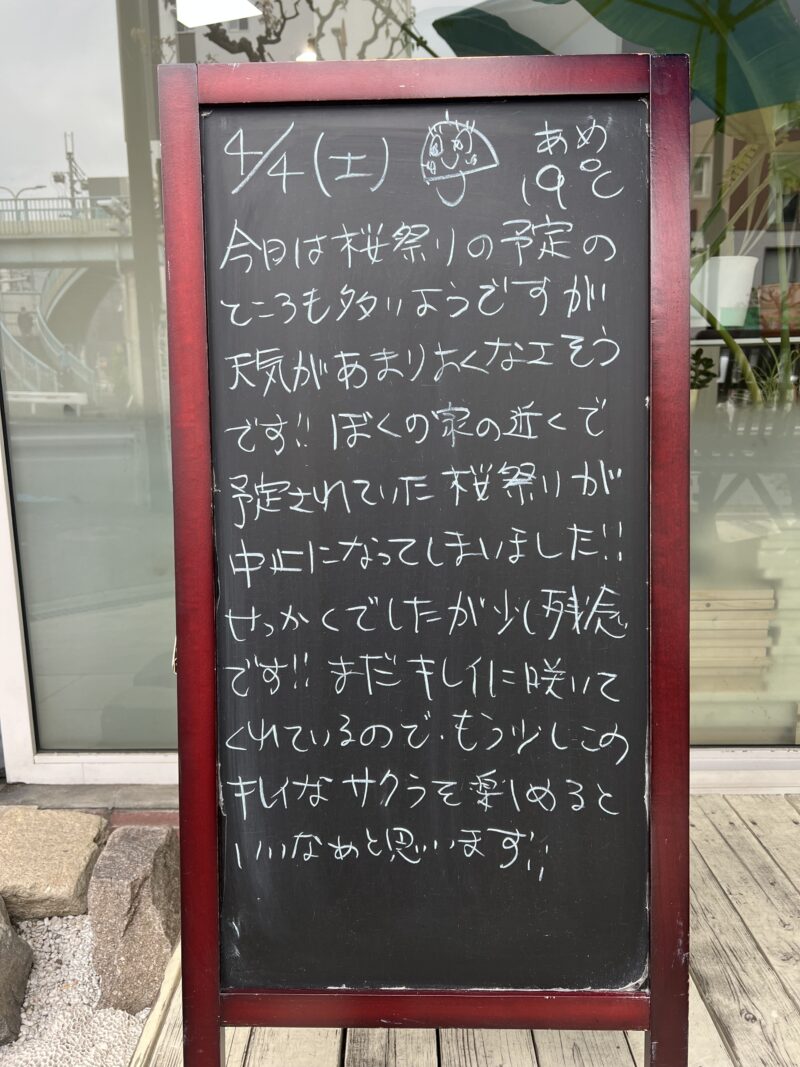 4/4(土) あめ 19℃
今日は桜祭りの予定の
ところも多いようですが
天気があまりおくなエそう
です!! ぼくの家の近くで
予定されていた桜祭りが
中止になってしまいました!!
せっかくでしたが少し残念
です!! まだキレイに咲いて
くれているので、もう少しこの
キレイなサクラを楽しめると
いいなぁと思います!!